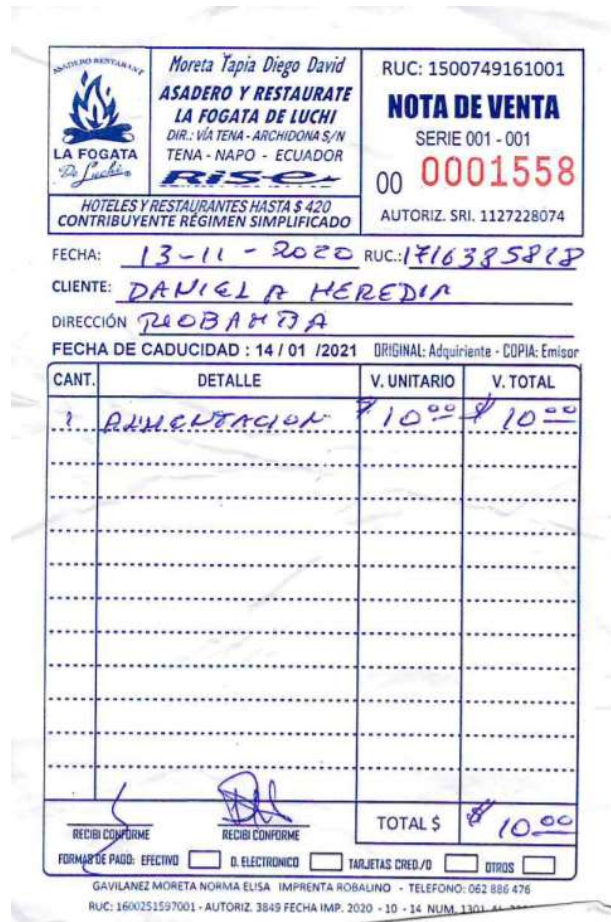 ASADERO RESTAURANT
LA FOGATA
De Luchi
Moreta Tapia Diego David
ASADERO Y RESTAURATE
LA FOGATA DE LUCHI
DIR.: VÍA TENA - ARCHIDONA S/N
TENA - NAPO - ECUADOR
RISE
HOTELES Y RESTAURANTES HASTA $ 420
CONTRIBUYENTE RÉGIMEN SIMPLIFICADO
RUC: 1500749161001
NOTA DE VENTA
SERIE 001 - 001
00 0001558
AUTORIZ. SRI. 1127228074
FECHA: 13-11-2020 RUC.: 1716385818
CLIENTE: DANIELA HEREDIA
DIRECCIÓN RIOBAMBA
FECHA DE CADUCIDAD : 14 / 01 /2021 ORIGINAL: Adquiriente - COPIA: Emisor
CANT. DETALLE V. UNITARIO V. TOTAL
1 ALIMENTACION $ 10.00 $ 10.00
TOTAL $ $ 10.00
RECIBI CONFORME RECIBI CONFORME
FORMAS DE PAGO: EFECTIVO D. ELECTRONICO TARJETAS CRED./D OTROS
GAVILANEZ MORETA NORMA ELISA IMPRENTA ROBALINO - TELEFONO: 062 886 476
RUC: 1600251597001 - AUTORIZ. 3849 FECHA IMP. 2020 - 10 - 14 NUM. 1301